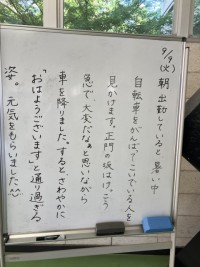 9/9(火)朝 出勤していると 暑い中
自転車をがんばってこいでいる人を
見かけます。正門の坂はけっこう
急で大変だなぁと思いながら
車を降りました。すると、さわやかに
「おはようございます」と通り過ぎる
姿。元気をもらいました^^